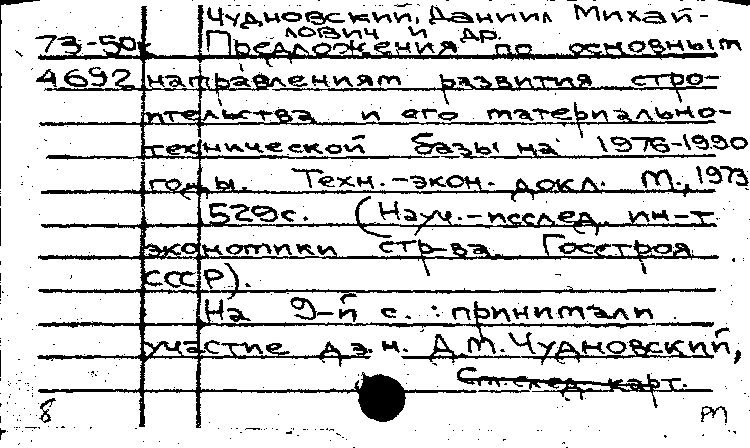 Чудновский, Даниил Михай-
лович и др.
73-50к Предложения по основным
4692 направлениям развития стро-
ительства и его материально-
технической базы на 1976-1990
годы. Техн.-экон. докл. М., 1973
529с. (Науч.-исслед. ин-т
экономики стр-ва. Госстроя
СССР).
На 9-й с.: принимали
участие д.э.н. Д.М. Чудновский,
См. след. карт.
8 РП